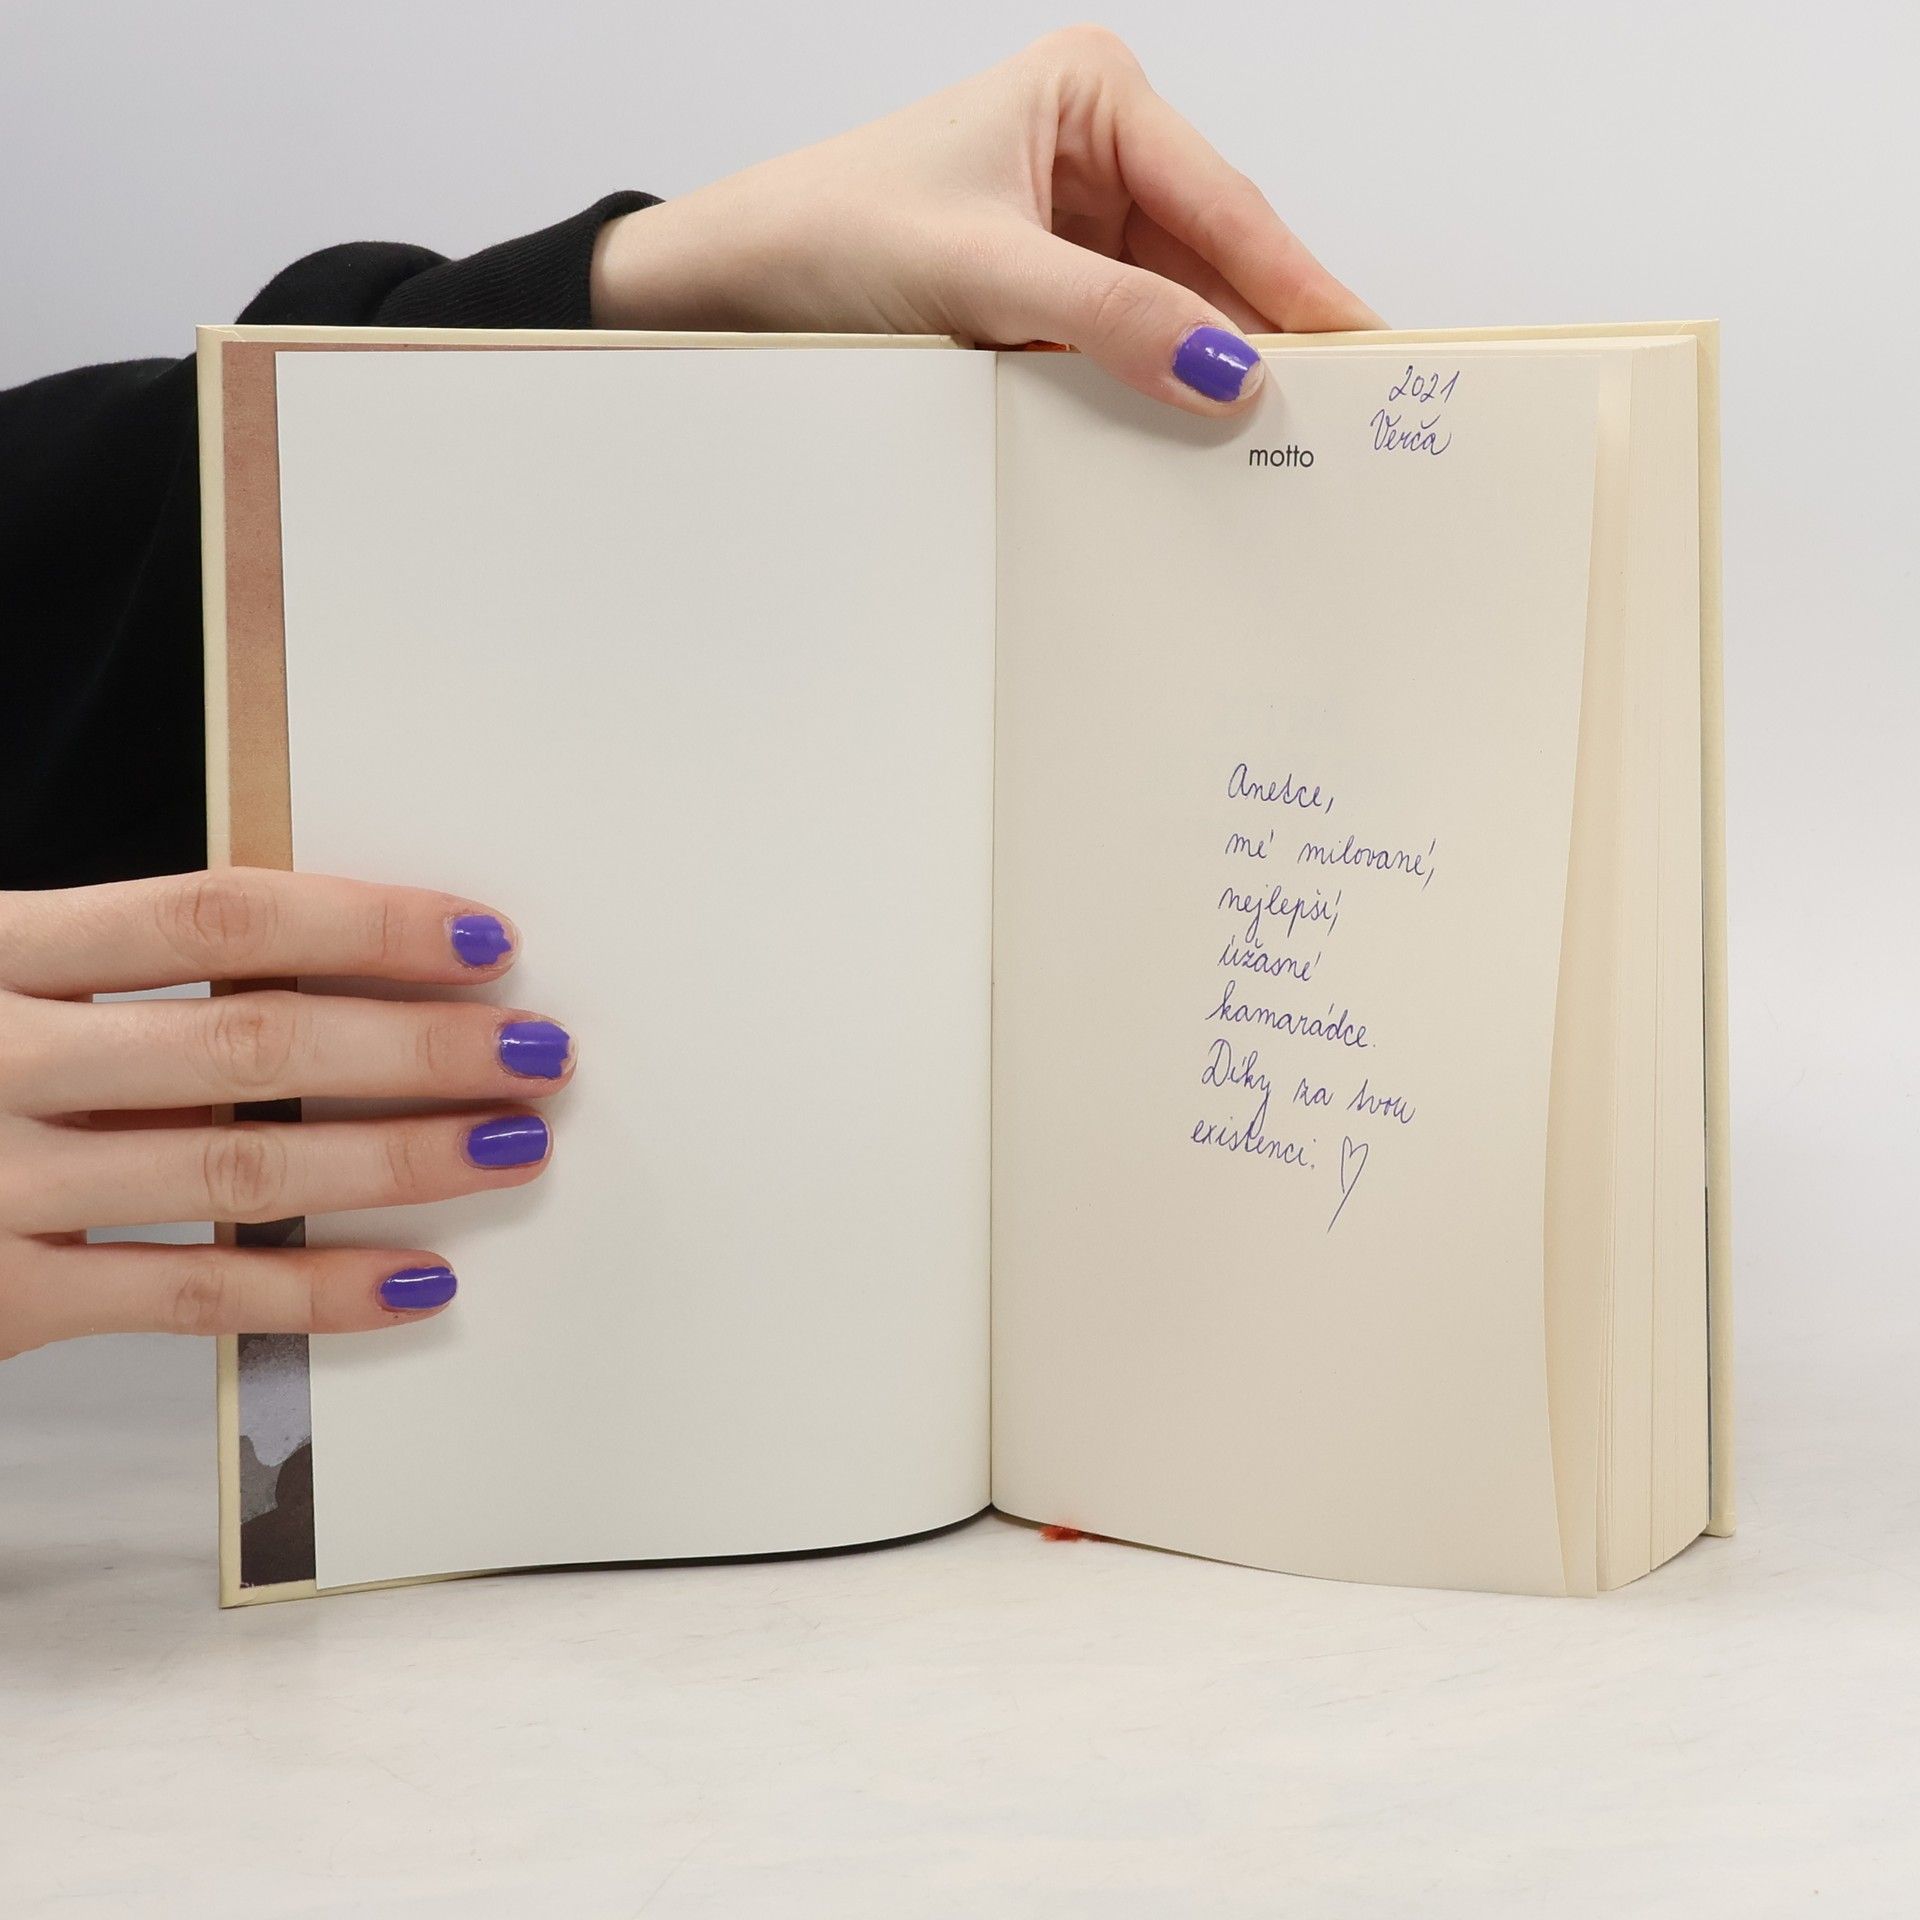 2021
Verča
motto
Anetce,
mé milované,
nejlepší,
úžasné
kamarádce.
Díky za tvou
existenci. ♡